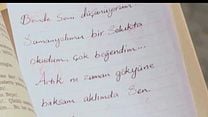 Bende Seni düşünüyorum
Samanyolunu bir solukta
okudum, çok beğendim...
Artık ne zaman gökyüne
baksam aklımda Sen